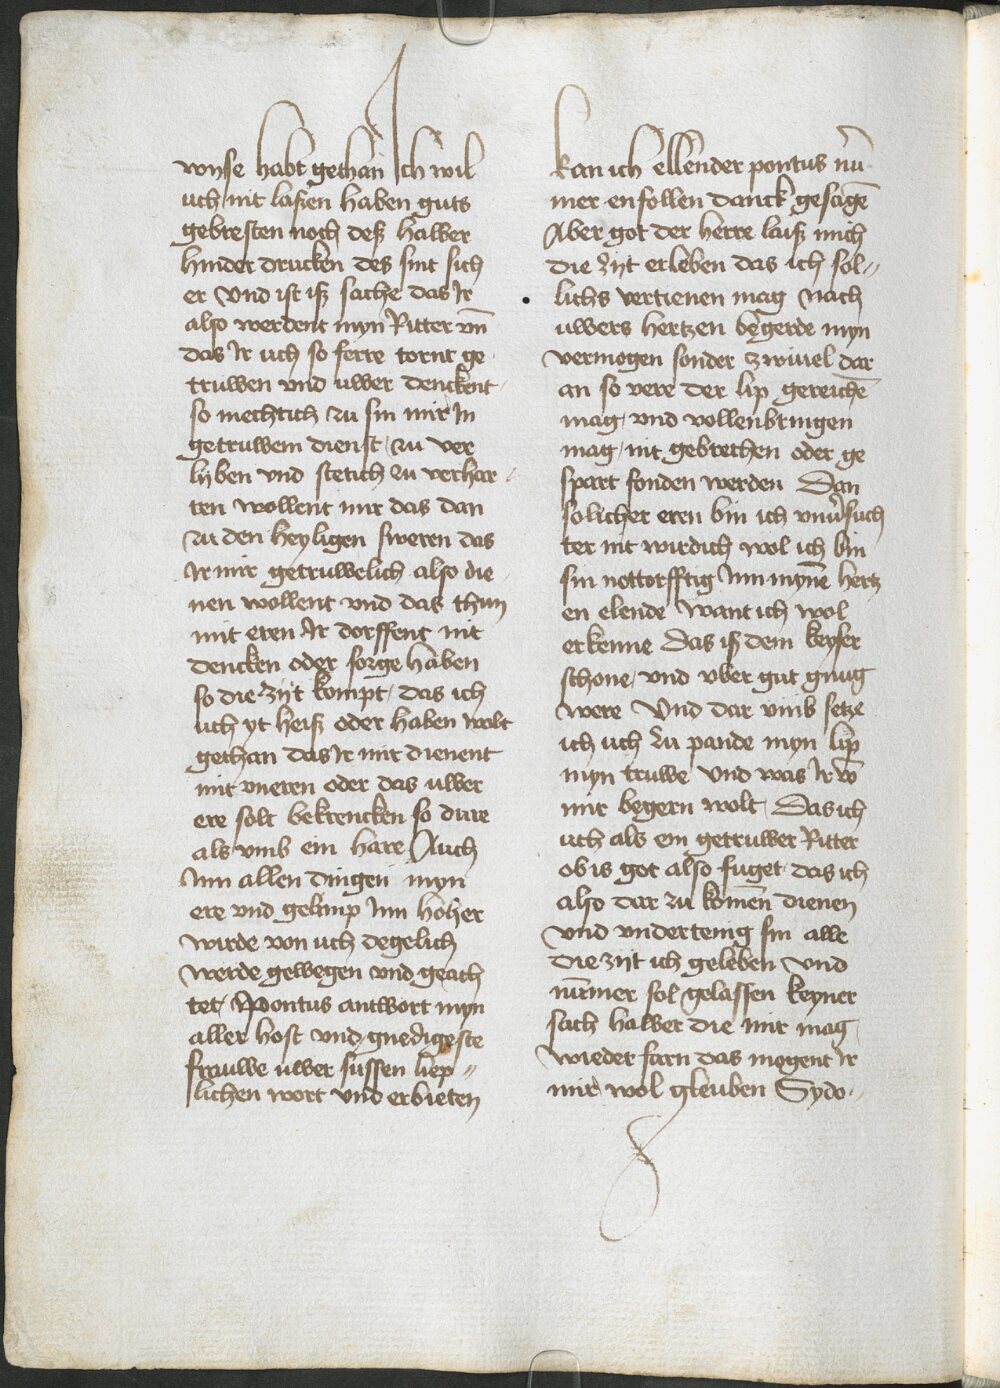 wyse habt gethan Ich wil
uch nit laßen haben guts
gebresten noch deß halber
hinder drucken des sint sich
er Vnd ist iß sache das Ir
also werdent myn Ritter vm̄
das Ir uch so ferre tornt ge
truwen vnd uwer denckent
so mechtich zu sin mir In
getruwem dienst zu ver
lyben vnd stetich zu verhar〃
ten wollent mir das dan
zu den heyligen sweren das
Ir mir getruwelich also die
nen wollent vnd das thun
mit eren Ir dorffent nit
dencken oder sorge haben
so die zijt kompt das ich
uch yt heiß oder haben wolt
gethan das Ir mir dienent
mit vneren oder das uwer
ere solt bekrencken so dure
als vmb ein hare Auch
Inn allen dingen myn
ere vnd gelimp Inn hoher
wirde von uch degelich
werde gewegen vnd geach
tet Pontus antwort myn
aller host vnd gnedigeste
frauwe uwer sussen liep〃
lichen wort vnd erbieten
kan ich ellender pontus nū
mer enfollen danck gesagē
Aber got der herre laiß mich
die zijt erleben das ich sol〃
lichs vertienen mag Nach
uwers hertzen begerde myn
vermogen sonder zwiuel dar
an so vere der lip gereichē
mag vnd vollenbringen
mag nit gebrechen oder ge
spart fonden werden Dan
solicher eren bin ich vnūsuch
ter nit wirdich wol ich bin
sin nottorfftig Inn mynē hertz
en elende want ich wol
erkenne Das iß dem keyser
schone vnd vber gut gnug
were Vnd dar vmb setze
ich uch zu pande myn lip
myn truwe Vnd was Ir vō
mir begern wolt Das ich
uch als ein getruwer Ritter
ob is got also fuget das ich
also dar zu komēn dienen
Vnd vndertenig sin alle
die zijt ich geleben Vnd
nūmer sol gelassen keyner
sach halber die mir mag
wieder farn das mogent Ir
mir wol gleuben Sydo〃